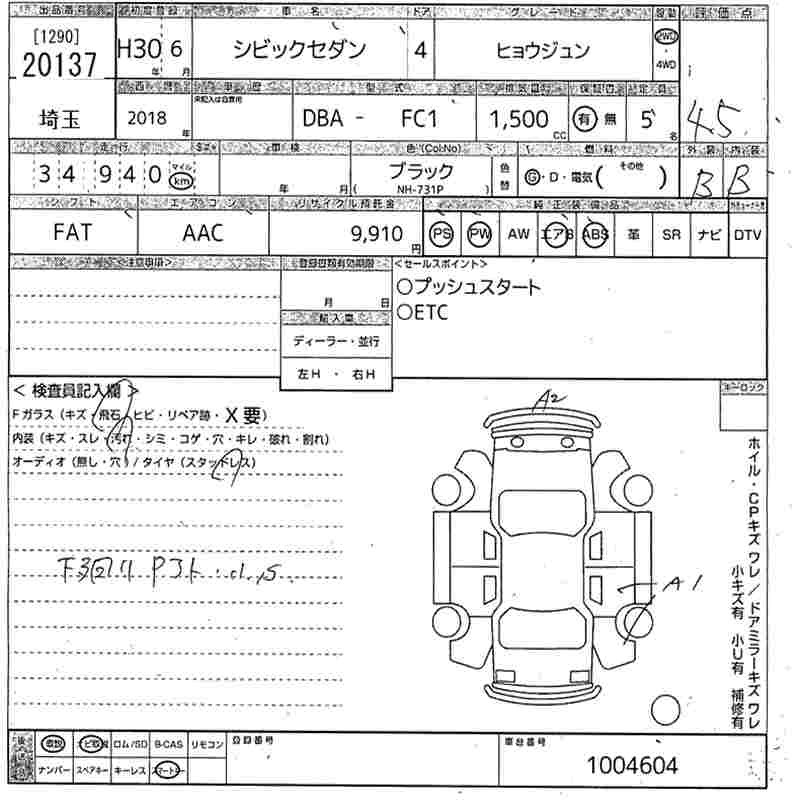 出品番号 初度登録 車名 ドア グレード 駆動 評価点
[1290]
20137
H30 年 6 月
シビックセダン 4 ヒョウジュン
2WD
4WD
4.5
西暦 車歴 型式 排気量 保証書 定員
未記入は自家用
埼玉 2018 年 DBA - FC1 1,500 CC 有 無 5 名
走行 車検 色(Col.No) 燃料 外装 内装
34 940 マイル km
年 月
ブラック
( NH-731P )
色替
G・D・電気( その他 )
B B
シフト エアコン リサイクル預託金 純正装備品
FAT AAC 9,910 円
PS PW AW エアB ABS 革 SR ナビ DTV
<注意事項> 登録書類有効期限 <セールスポイント>
月 日
○プッシュスタート
○ETC
輸入車
ディーラー・並行
左H ・ 右H
< 検査員記入欄 >
Fガラス(キズ・飛石・ヒビ・リペア跡・X要)
内装(キズ・スレ・汚れ・シミ・コゲ・穴・キレ・破れ・割れ)
オーディオ(無し・穴)/タイヤ(スタッドレス)
A2
A1
キーロック
ホイル・CPキズ ワレ/ドアミラーキズ ワレ
小キズ有 小U有 補修有
後送品
取説 ナビ取説 ロム/SD B-CAS リモコン
ナンバー スペアキー キーレス スマートキー
登録番号
車台番号
1004604